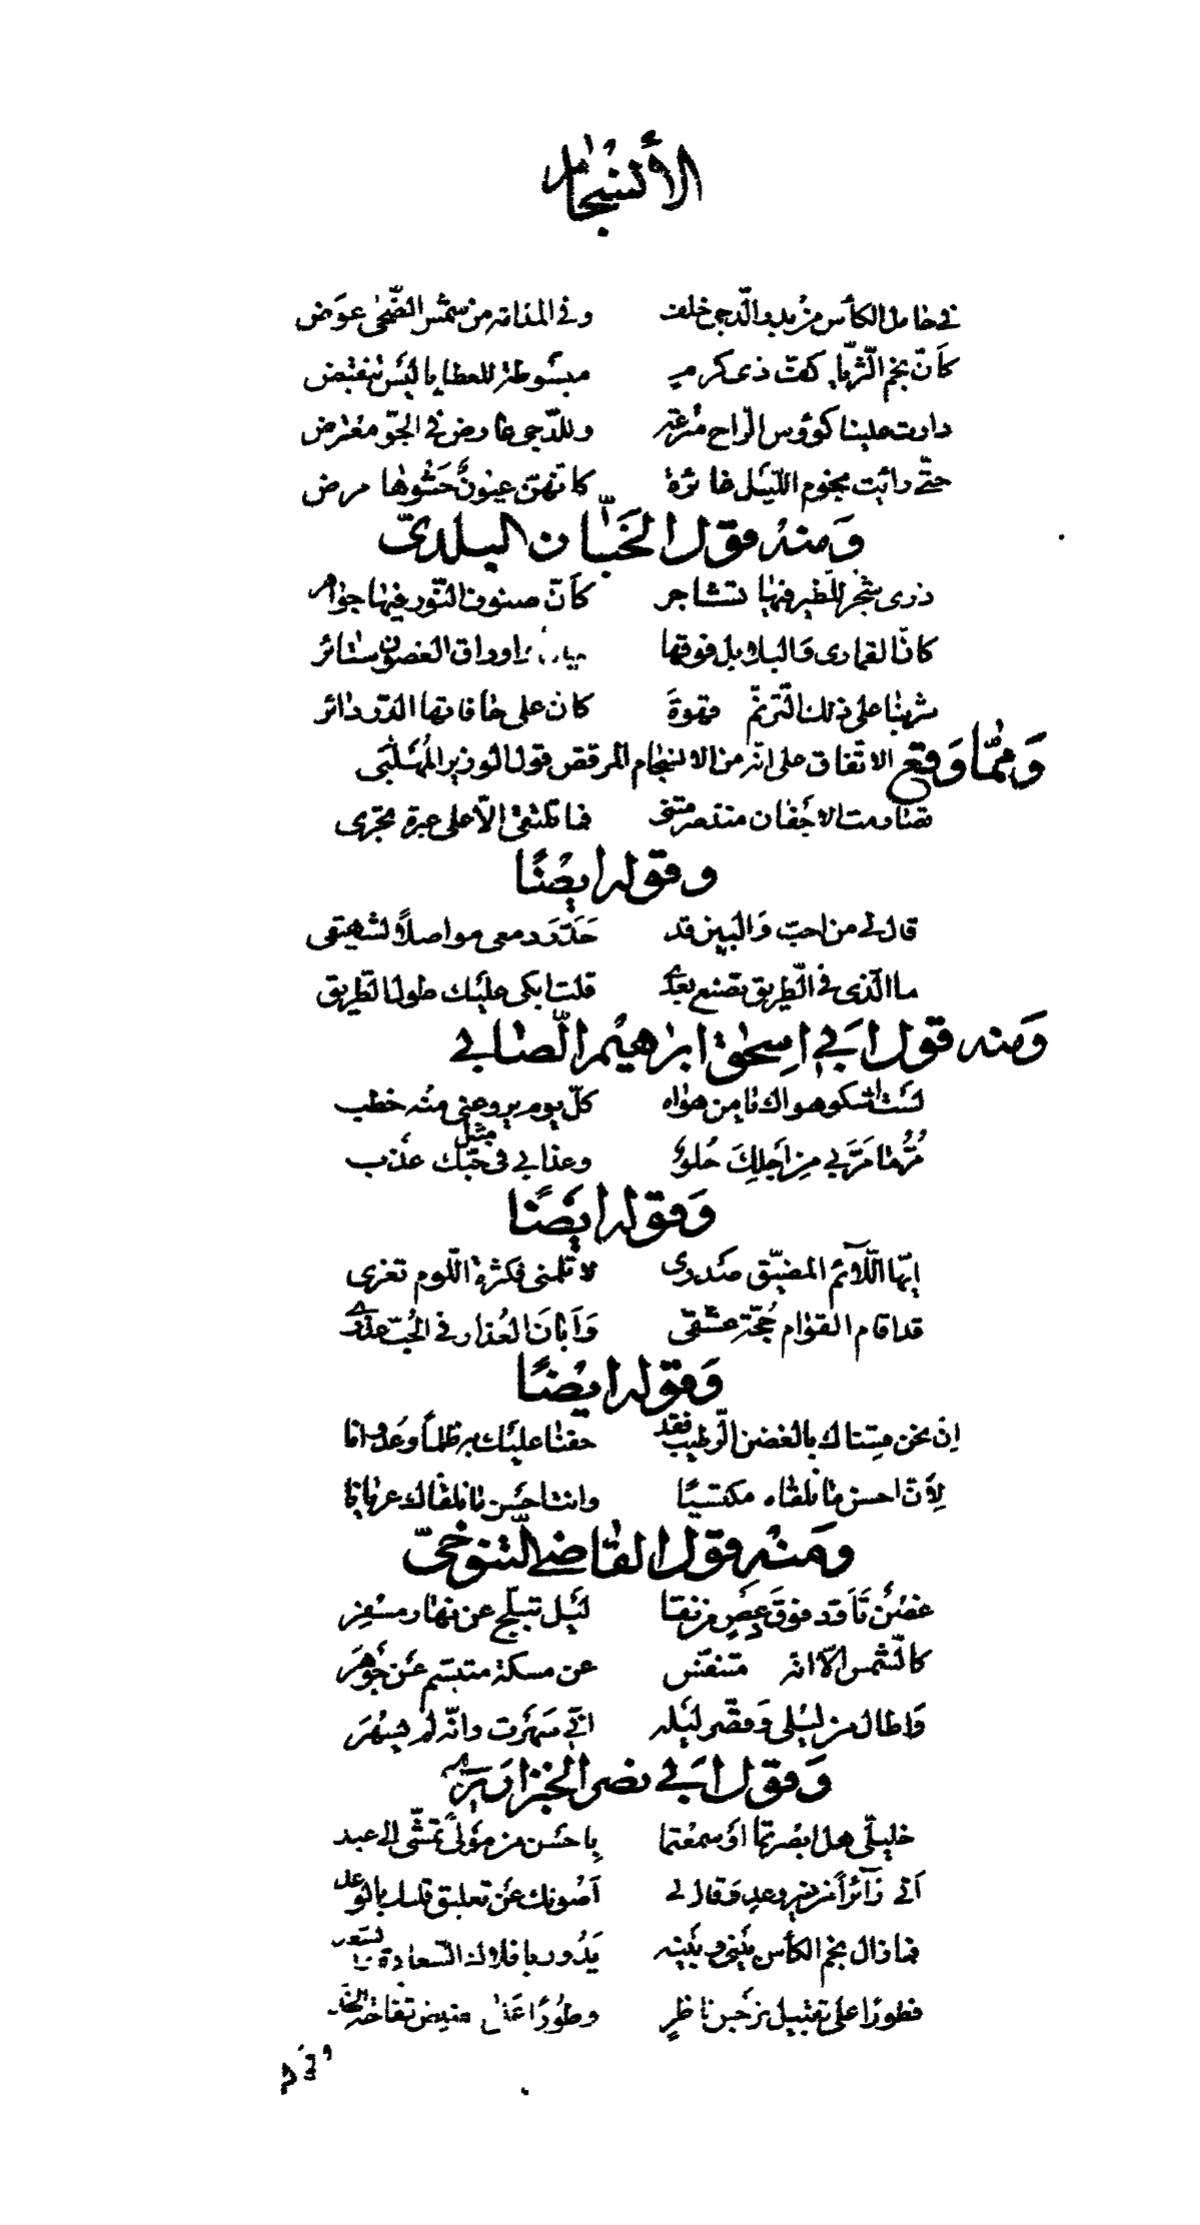 الأنسجام
في حامل الكأس من بدر الدّجى خلف وفي المدامة من شمس الضّحى عوَض
كأنّ نجم الثّريّا كفّ ذى كرم مبسُوطة للعطايا ليْسَ تنقبض
دارت علينا كؤوس الراح مُترعة وللدّجى عارض في الجوّ معترض
حتّى رائت نجوم اللّيل غائرة كانّهنّ عيُونٌ حَشْوها مرض
وَمنهُ قول الخبّاز البلدىّ
ذرى شجَر للطّير فيها تشاجر كأنّ صنوف النّور فيها جواهر
كانّ القمارى وَالبلابل فوقها اوراق الغصون ستائر
شربنا على ذلك التّرنّم قهوةً كان على حافاتها الدّر دائر
وَممّا وَقع الاتّفاق على انّه من الانسجام المرقص قول الوزير المُهلّبى
تصارمت الاجْفان منذ صرمتنى فما تلتقى الّا على عبرة تجرى
وقوله ايضًا
قال لى من احبّ وَالبين قد حَدّرَ دمعى مواصلاً لشهيقى
ما الّذى في الطّريق تصنع بعدى قلت ابكى عليْك طول الطّريق
وَمنه قول ابَي اسحٰق ابراهيْم الصّابي
لسْت اشكو هواك يا من هواه كلّ يوم يروعنى منْه خطب
مُرُّ ما مَرّ بي من اجلِكَ حُلوٌ وعذابي في مثل حبّك عَذب
وَقوله ايضًا
ايّها اللّآئم المضيّق صَدرى لا تلمنى فكثرة اللّوم تغرى
قد اقام القوام حُجّة عشقى وَاَبانَ العُذار في الحُبّ عذرى
وَقوله ايضًا
اِن نحن قسْناك بالغصن الرّطيب فقد حفنا عليْك به ظلماً وعَدوانا
لِاَنّ احسن ما نلقاه مكتسيًا وانت احسَن ما نلقاك عريانا
ومَنْهِ قوْل القاضي التّنوخىّ
غصْن تَأوّد فوق دِعصٍ من نقا ليْل تبلّج عن نهار مسْفر
كالشّمس الّا انّه متنفّس عن مسكة متبسّم عَن جَوْهر
وَاطال من ليْلى وَقصّر ليْله انّى سَهرت وانّه لم يسْهَر
وَقول ابَي نصر الخبزارزى
خليلىّ هل ابصرتما اوْ سمعْتما باحسَن من مَوْلىً تمشّى الى عبد
اَتى زآئراً من غير وعدٍ وَقال لى اَصُونك عَن تعليق قلبك بالوعد
فما زال نجم الكأس بيْنى وبيْنه يَدُور بافلاك السّعادة
فطورًا على تقبيل نرجس ناظرٍ وطَوْرًا على تفّاحة الخد